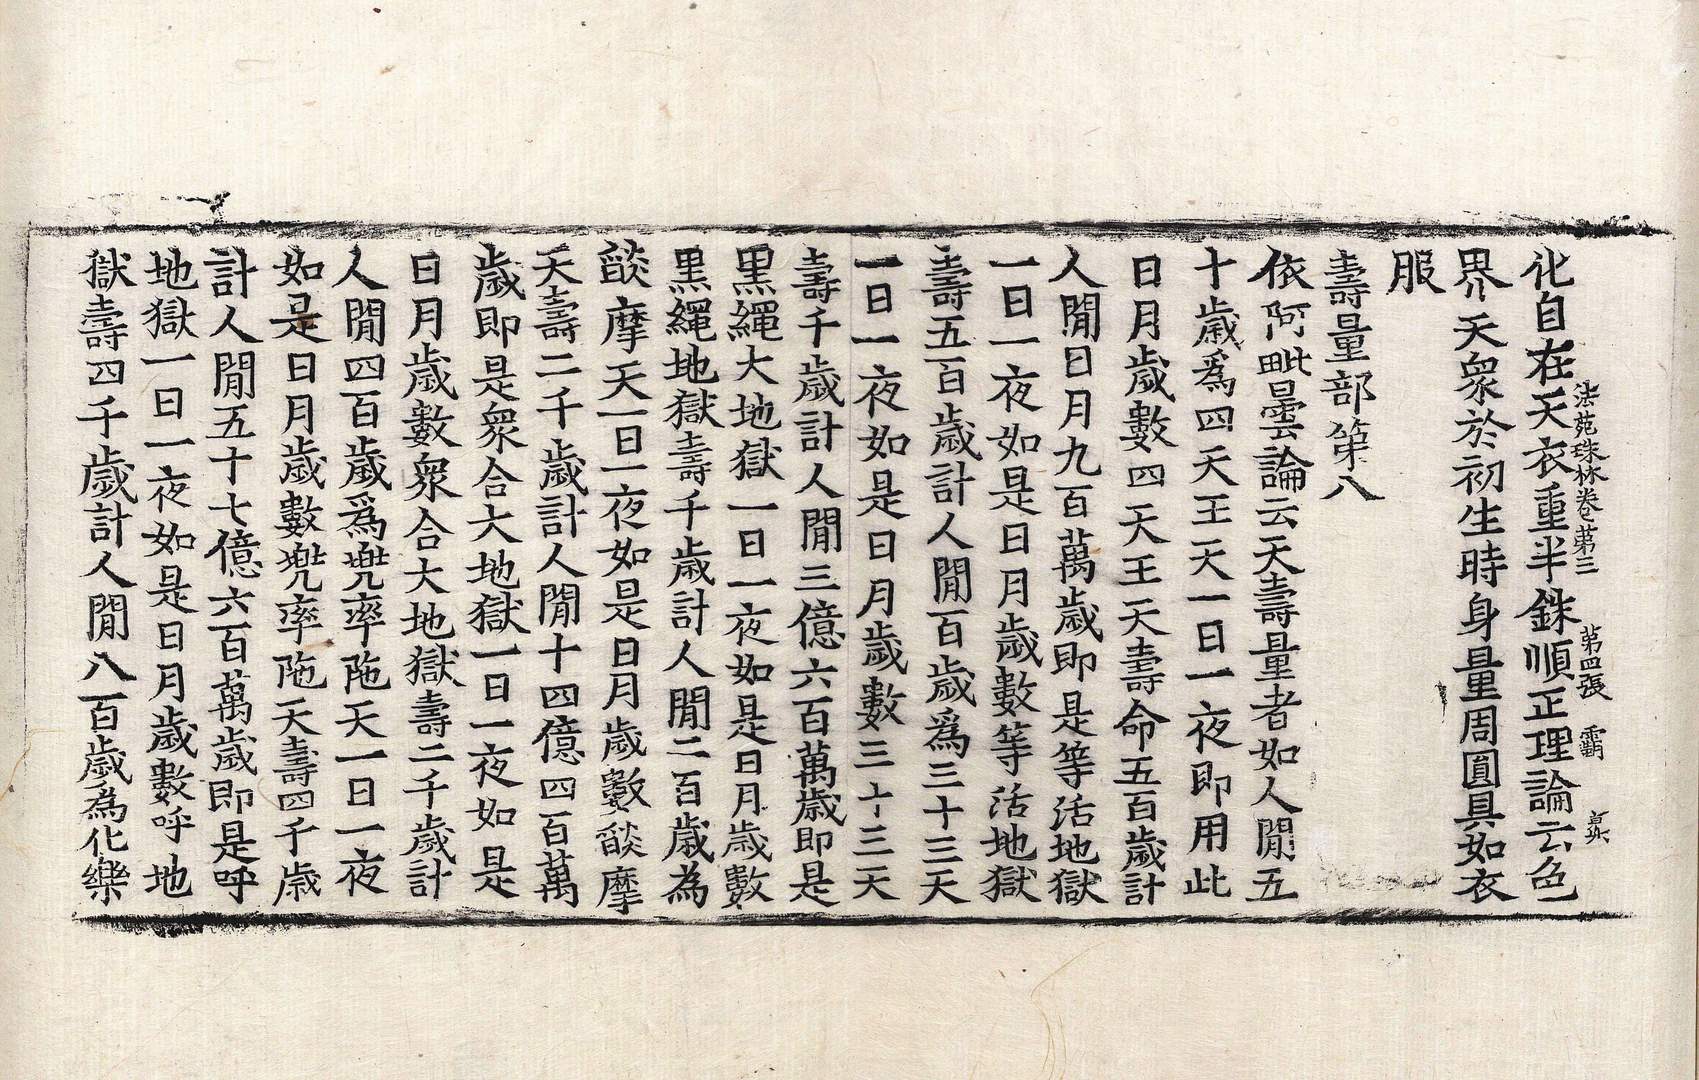 法苑珠林卷第三　第四張　霸
化自在天衣重半銖順正理論云色
界天衆於初生時身量周圓具如衣
服
壽量部第八
依阿毗曇論云天壽量者如人閒五
十歲爲四天王天一日一夜即用此
日月歲數四天王天壽命五百歲計
人閒日月九百萬歲即是等活地獄
一日一夜如是日月歲數等活地獄
壽五百歲計人閒百歲爲三十三天
一日一夜如是日月歲數三十三天
壽千歲計人閒三億六百萬歲即是
黑繩大地獄一日一夜如是日月歲數
黑繩地獄壽千歲計人閒二百歲為
燄摩天一日一夜如是日月歲數燄摩
天壽二千歲計人閒十四億四百萬
歲即是衆合大地獄一日一夜如是
日月歲數衆合大地獄壽二千歲計
人閒四百歲爲兠率陁天一日一夜
如是日月歲數兠率陁天壽四千歲
計人閒五十七億六百萬歲即是呼
地獄一日一夜如是日月歲數呼地
獄壽四千歲計人閒八百歲爲化樂